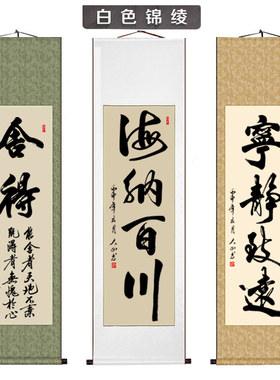 白色锦绫
舍得
能舍者天地不棄
既得者無愧於心
海纳百川
寧静致遠